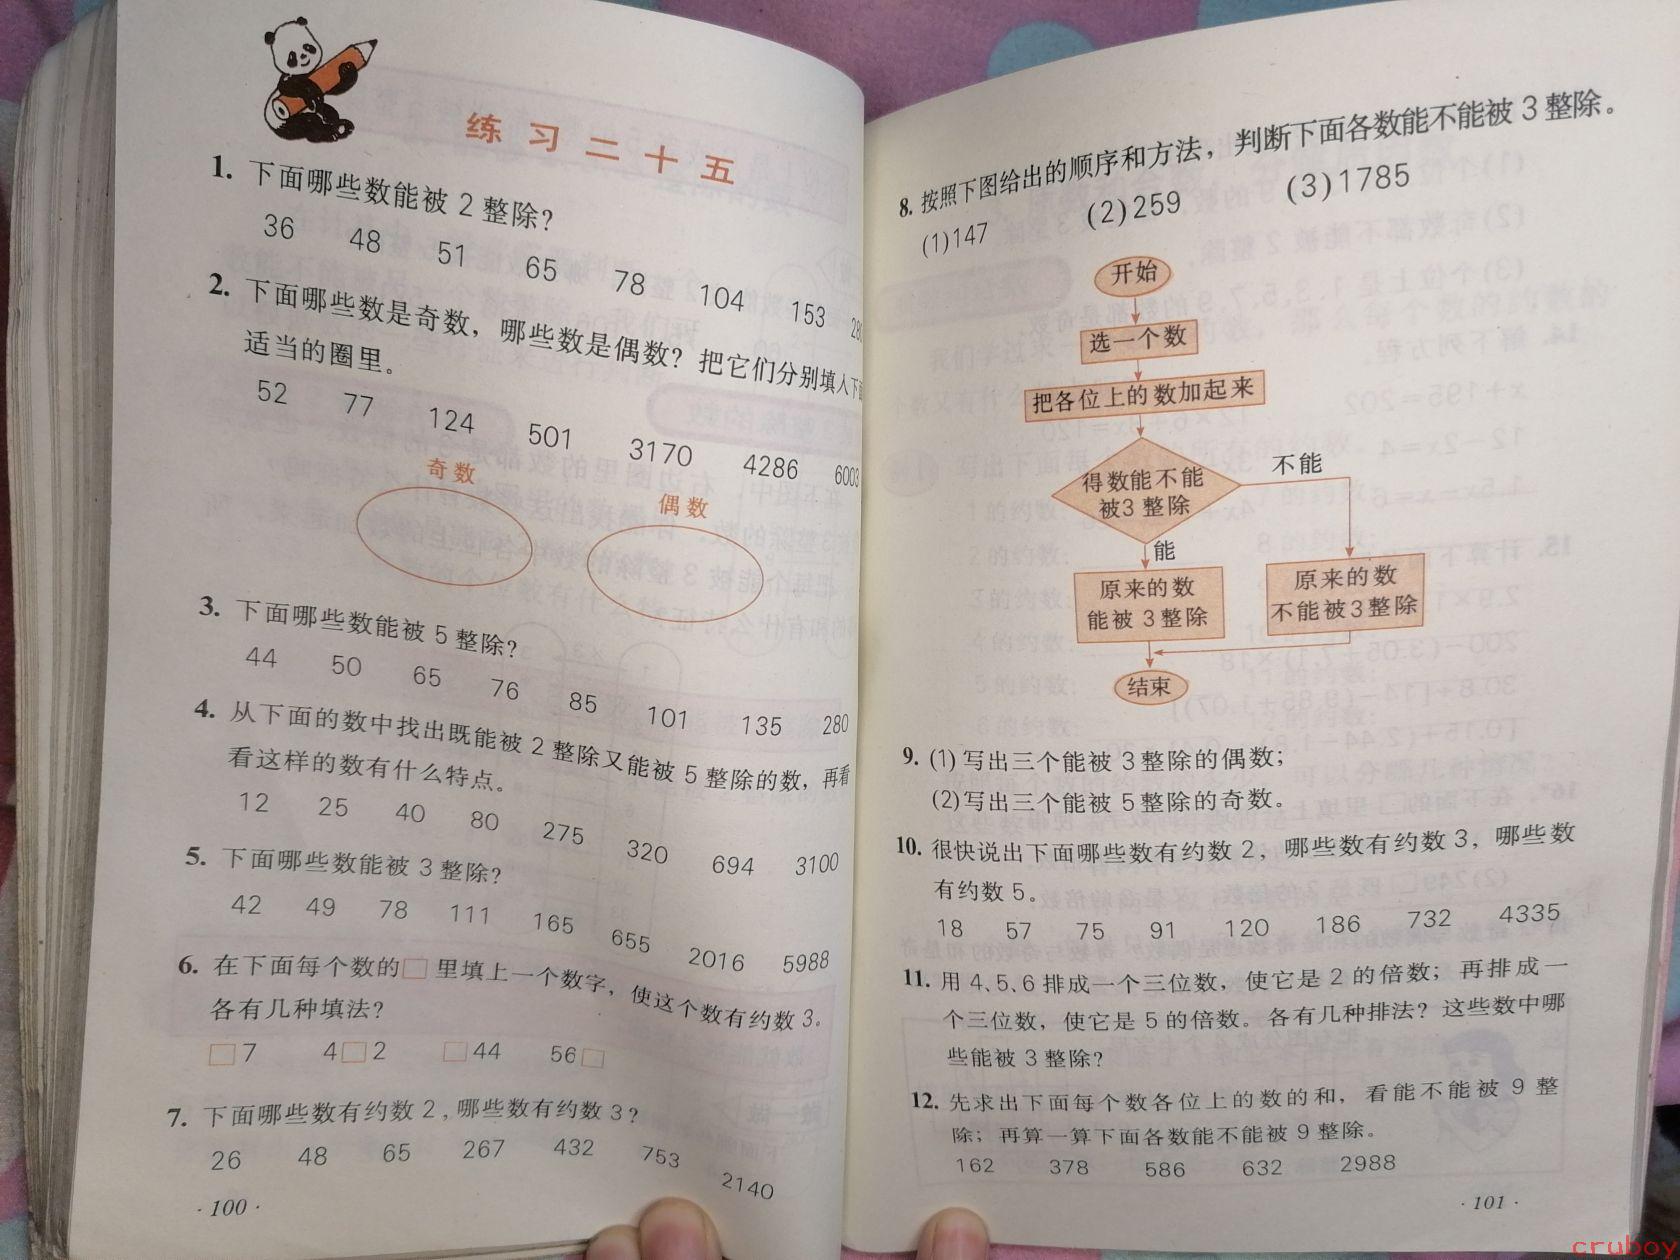 练习二十五
1. 下面哪些数能被 2 整除？
36 48 51 65 78 104 153 280
2. 下面哪些数是奇数，哪些数是偶数？把它们分别填入下面
适当的圈里。
52 77 124 501 3170 4286 6003
奇数 偶数
3. 下面哪些数能被 5 整除？
44 50 65 76 85 101 135 280
4. 从下面的数中找出既能被 2 整除又能被 5 整除的数，再看
看这样的数有什么特点。
12 25 40 80 275 320 694 3100
5. 下面哪些数能被 3 整除？
42 49 78 111 165 655 2016 5988
6. 在下面每个数的□里填上一个数字，使这个数有约数 3。
各有几种填法？
□7 4□2 □44 56□
7. 下面哪些数有约数 2，哪些数有约数 3？
26 48 65 267 432 753 2140
·100·
8. 按照下图给出的顺序和方法，判断下面各数能不能被 3 整除。
(1)147 (2)259 (3)1785
开始
选一个数
把各位上的数加起来
得数能不能
被3整除
不能
能
原来的数
能被 3 整除
原来的数
不能被3整除
结束
9. (1) 写出三个能被 3 整除的偶数；
(2)写出三个能被 5 整除的奇数。
10. 很快说出下面哪些数有约数 2，哪些数有约数 3，哪些数
有约数 5。
18 57 75 91 120 186 732 4335
11. 用 4、5、6 排成一个三位数，使它是 2 的倍数；再排成一
个三位数，使它是 5 的倍数。各有几种排法？这些数中哪
些能被 3 整除？
12. 先求出下面每个数各位上的数的和，看能不能被 9 整
除；再算一算下面各数能不能被 9 整除。
162 378 586 632 2988
·101·
cruboy